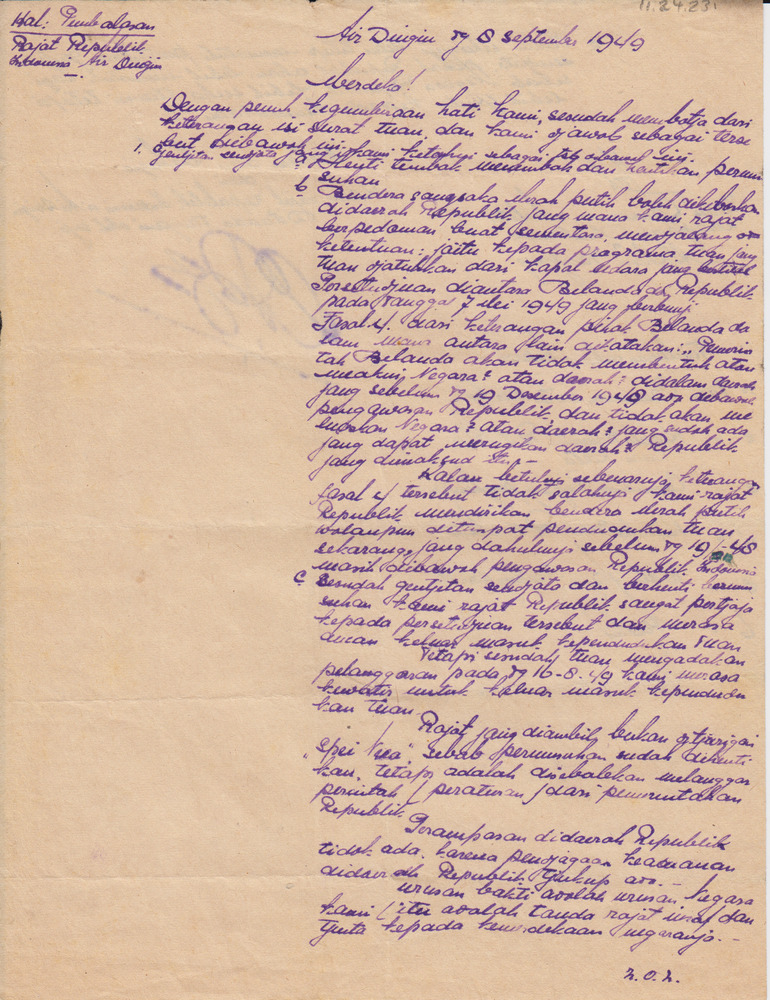 11.24.231
Hal: Pembalasan
Rajat Republik
Indonesia Air Dingin
Air Dingin tg 8 September 1949
Merdeka!
Dengan penuh kegembiraan hati kami, sesudah membatja dari
keterangan isi surat tuan, dan kami djawab sebagai terse
but dibawah ini.
1. Gentjatan sendjata jang kami ketahui sebagai tsb dibawah ini.
a Henti tembak menembak dan hentikan permu
suhan
b Bendera sangsaka Merah putih boleh dikibarkan
didaerah Republik, jang mana kami rajat
berpedoman buat sementara, mendjelang
ketentuan: jaitu kepada programa tuan jang
tuan djatuhkan dari kapal udara jang
Persetudjuan diantara Belanda dg Republik
pada tanggal 7 Mei 1949 jang berbunji
Fasal 4. dari keterangan pihak Belanda da
lam mana antara lain dikatakan: "Pemerin
tah Belanda akan tidak membentuk atau
meakui Negara2 atau daerah2 didalam daerah
jang sebelum tg 19 Desember 1948 ada dibawah
pengawasan Republik dan tidak akan me
luaskan Negara2 atau daerah2 jang sudah ada
jang dapat merugikan daerah2 Republik
jang dimaksud itu. -
Kalau betulnja sebenarnja keterangan
fasal 4 tersebut tidak salahnja kami rajat
Republik mendirikan bendera Merah putih
walaupun ditempat pendudukan tuan
sekarang, jang dahulunja sebelum tg 19/12-48
masih dibawah pengawasan Republik Indonesia
c Sesudah gentjatan sendjata dan berhenti permu
suhan kami rajat Republik sangat pertjaja
kepada persetudjuan tersebut dan merasa
aman keluar masuk kependudukan tuan
Tetapi sesudah tuan mengadakan
pelanggaran pada tg 10-8-49 kami merasa
kewatir untuk keluar masuk kependudu
kan tuan.
Rajat jang diambil bukan ditjurigai
"spei Nica", sebab permusuhan sudah dihenti
kan, tetapi adalah disebabkan melanggar
perintah / peraturan / dari pemerintahan
Republik.
Perampasan didaerah Republik
tidak ada, karena pendjagaan keamanan
didaerah Republik tjukup ada. -
Urusan bakti adalah urusan Negara
kami / itu adalah tanda rajat insaf dan
tjinta kepada kemerdekaan negaranja. -
z.o.z.